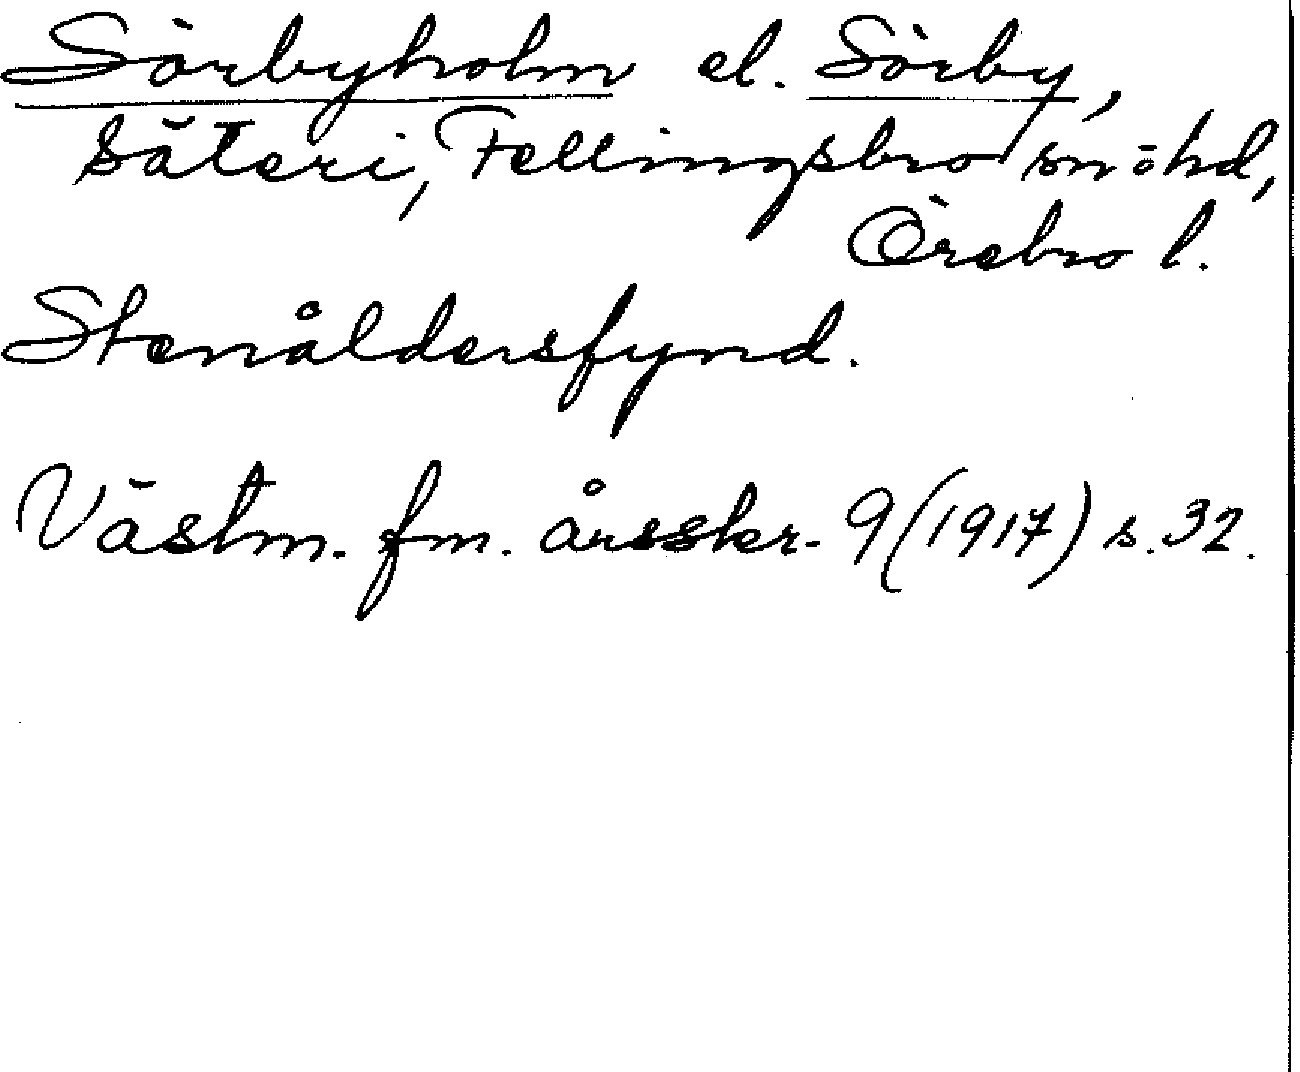 Sörbyholm el. Sörby,
säteri, Fellingsbro sn o hd,
Örebro l.
Stenåldersfynd.
Västm. fm. årsskr. 9 (1917) s. 32.